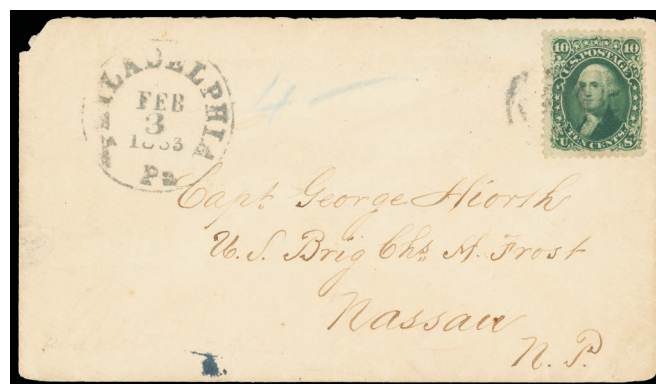 PHILADELPHIA
FEB
3
1863
Pa
4
10 10
U.S. POSTAGE
TEN CENTS
U S
Capt George Hiorth
U. S. Brig Chs. M. Frost
Nassau
N. P.